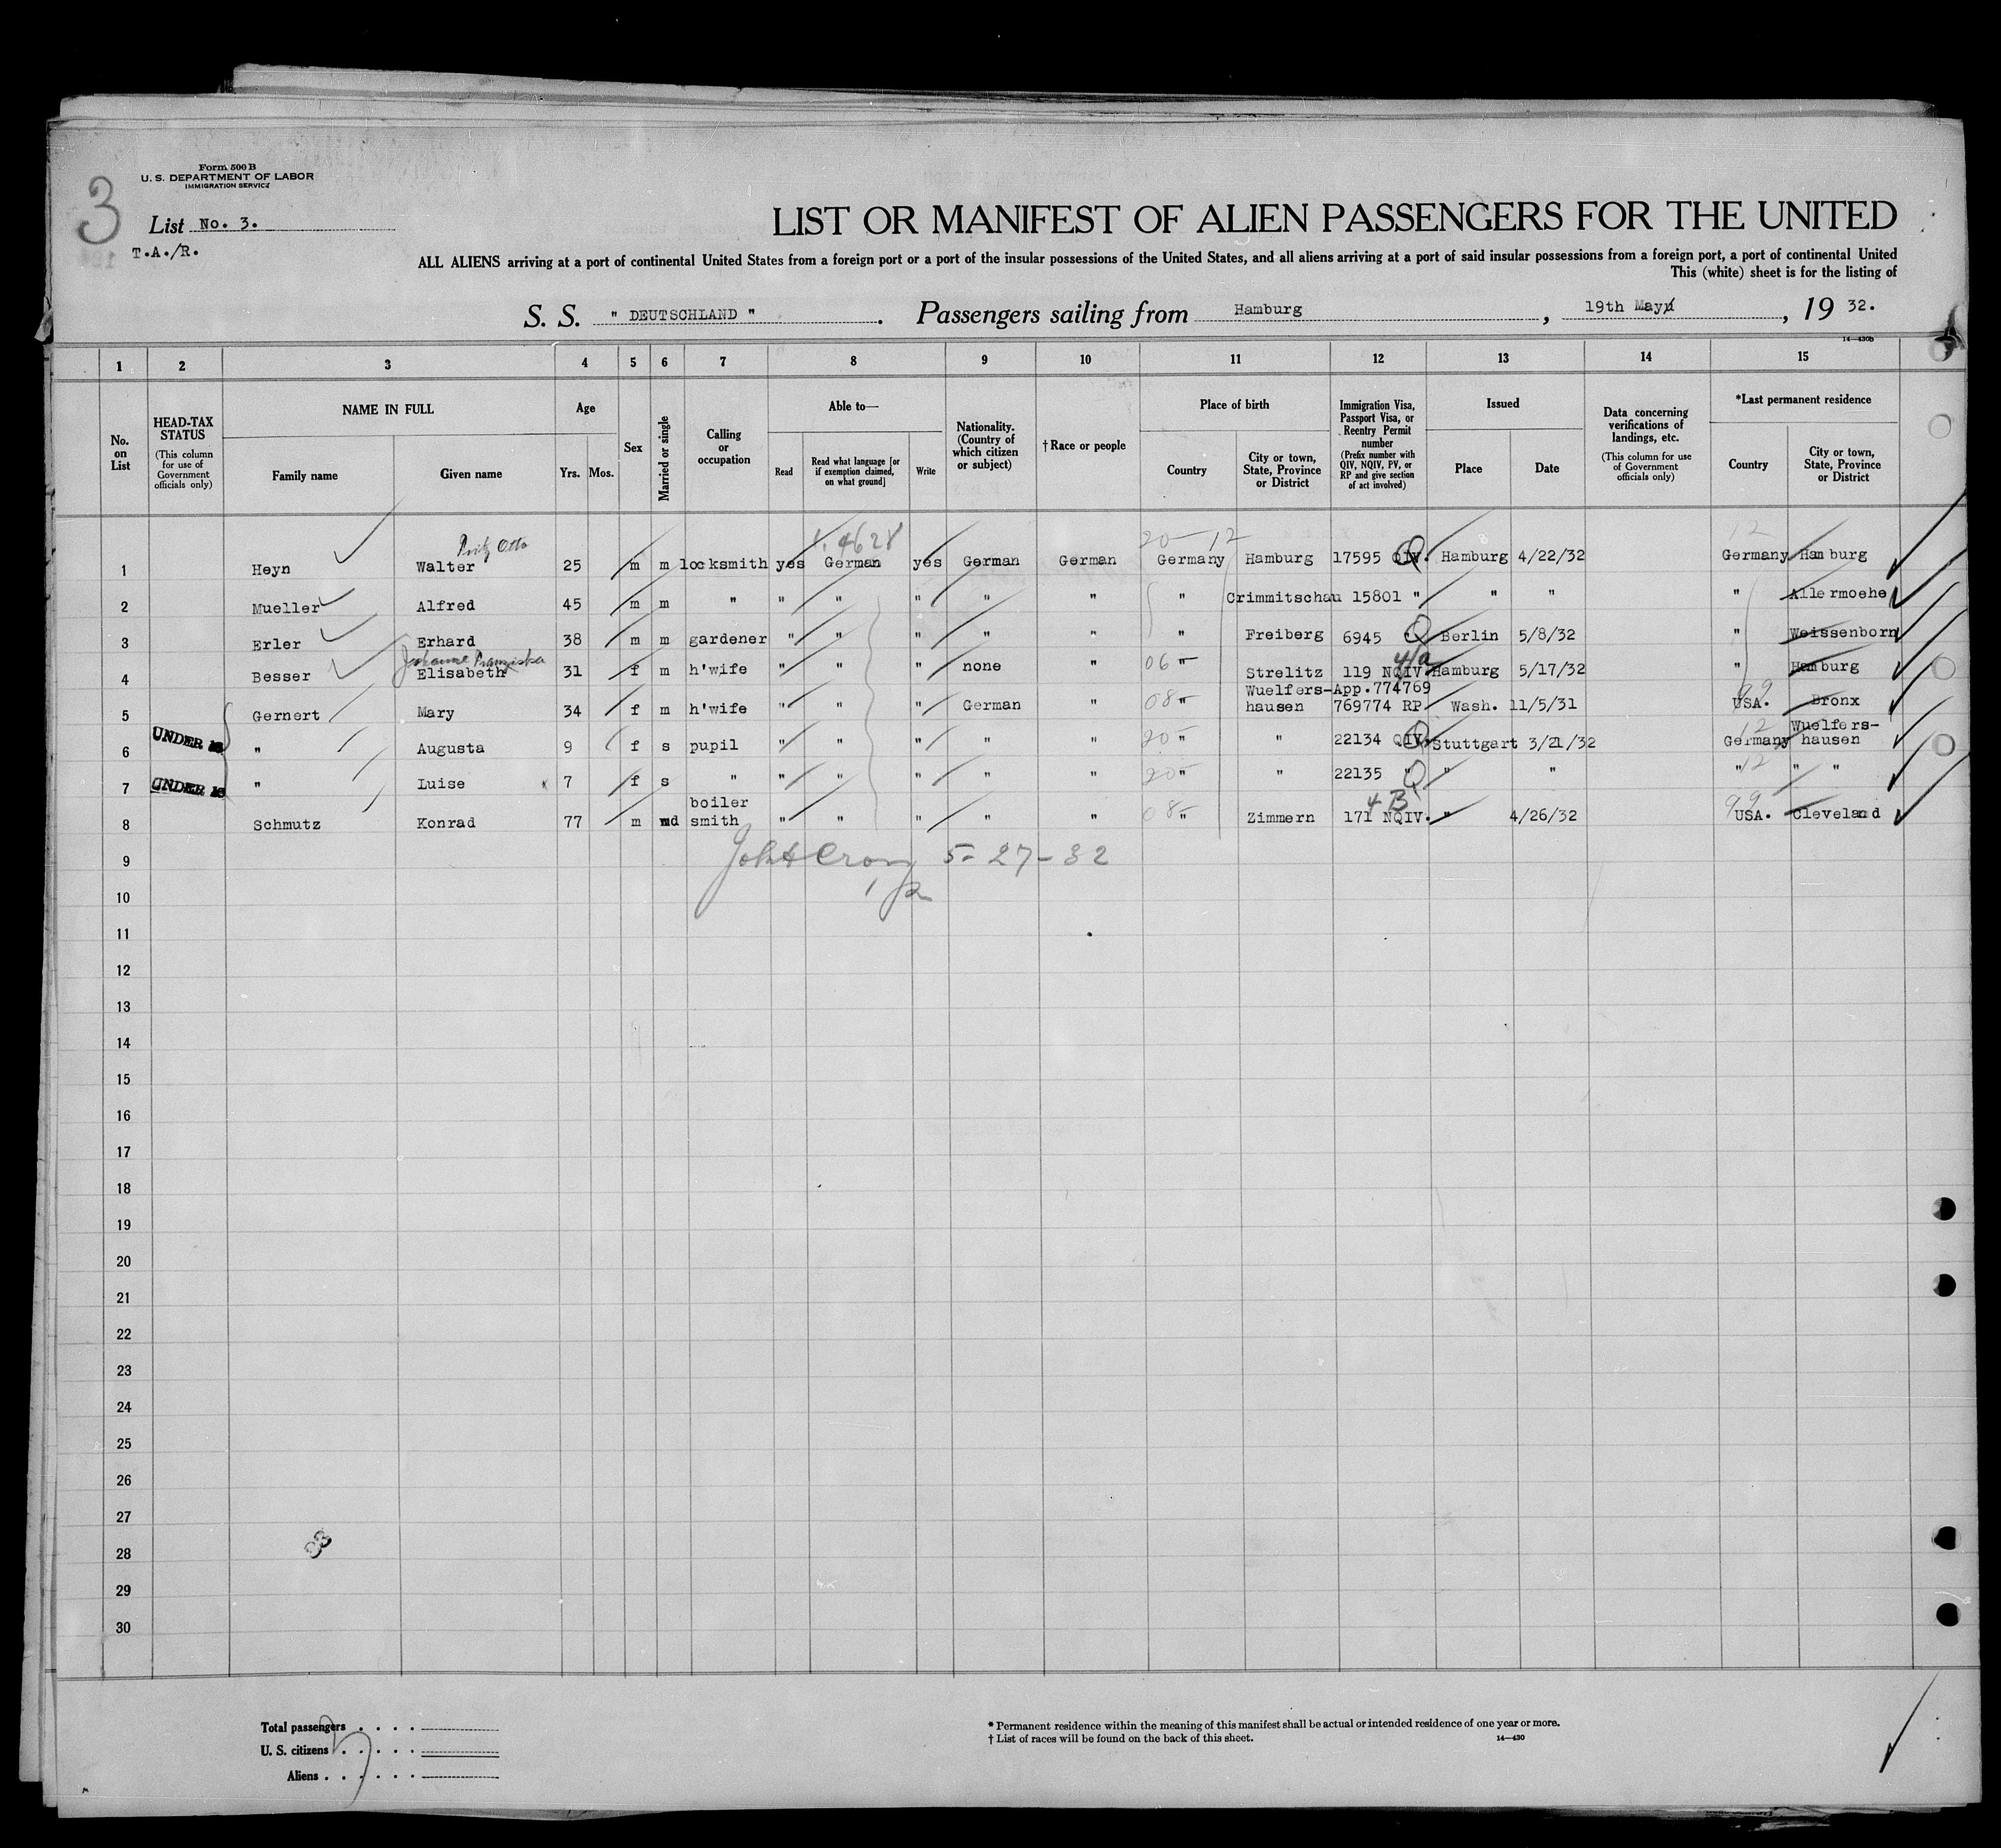 Form 500 B
U. S. DEPARTMENT OF LABOR
IMMIGRATION SERVICE
3
List No. 3.
T.A./R.
LIST OR MANIFEST OF ALIEN PASSENGERS FOR THE UNITED
ALL ALIENS arriving at a port of continental United States from a foreign port or a port of the insular possessions of the United States, and all aliens arriving at a port of said insular possessions from a foreign port, a port of continental United
This (white) sheet is for the listing of
S. S. " DEUTSCHLAND ". Passengers sailing from Hamburg, 19th May, 19 32.
14—430b
1 2 3 4 5 6 7 8 9 10 11 12 13 14 15
No. on List
HEAD-TAX STATUS (This column for use of Government officials only)
NAME IN FULL
Family name
Given name
Age
Yrs. Mos.
Sex
Married or single
Calling or occupation
Able to—
Read
Read what language [or if exemption claimed, on what ground]
Write
Nationality. (Country of which citizen or subject)
† Race or people
Place of birth
Country
City or town, State, Province or District
Immigration Visa, Passport Visa, or Reentry Permit number (Prefix number with QIV, NQIV, PV, or RP and give section of act involved)
Issued
Place
Date
Data concerning verifications of landings, etc. (This column for use of Government officials only)
*Last permanent residence
Country
City or town, State, Province or District
Fritz Otto 4628 20-12 12
1 Heyn Walter 25 m m locksmith yes German yes German German Germany Hamburg 17595 QIV. Hamburg 4/22/32 Germany Hamburg
2 Mueller Alfred 45 m m " " " " " " " Crimmitschau 15801 " " " " Allermoehe
3 Erler Erhard 38 m m gardener " " " " " " Freiberg 6945 Q Berlin 5/8/32 " Weissenborn
Johanne Franziska 4/a
4 Besser Elisabeth 31 f m h'wife " " " none " 06 " Strelitz 119 NQIV. Hamburg 5/17/32 " Hamburg
Wuelfers-App.774769 99
5 Gernert Mary 34 f m h'wife " " " German " 08 " hausen 769774 RP Wash. 11/5/31 USA. Bronx
UNDER 16 12 Wuelfers-
6 " Augusta 9 f s pupil " " " " " 20 " " 22134 QIV. Stuttgart 3/21/32 Germany hausen
UNDER 16
7 " Luise 7 f s " " " " " " 20 " " 22135 " Q " " " 12 " "
boiler 4 B 99
8 Schmutz Konrad 77 m md smith " " " " " 08 " Zimmern 171 NQIV. " 4/26/32 USA. Cleveland
9 5-27-32
10
11
12
13
14
15
16
17
18
19
20
21
22
23
24
25
26
27
28
29
30
Total passengers
U. S. citizens
Aliens
* Permanent residence within the meaning of this manifest shall be actual or intended residence of one year or more.
† List of races will be found on the back of this sheet.
14—430